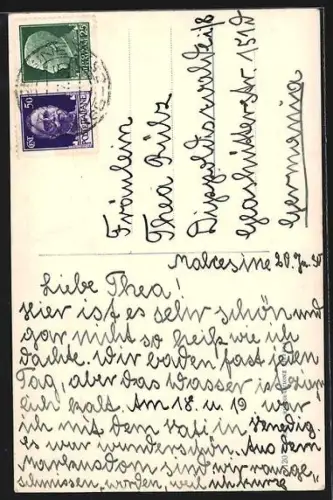 Fräulein
Thea Külz
Dippoldiswalde
str. 151 D
Germania
Malcesine 20. Ju. 30
Liebe Thea!
Hier ist es sehr schön und
gar nicht so heiß wie ich
dachte. Wir baden fast jeden
Tag, aber das Wasser ist ziem
lich kalt. Am 18. u. 19 war
ich mit dem Vati in Venedig.
es war wunderschön. Aus dem
Markusdom sind wir rausge
schmissen, worden, weil ich kurze
50